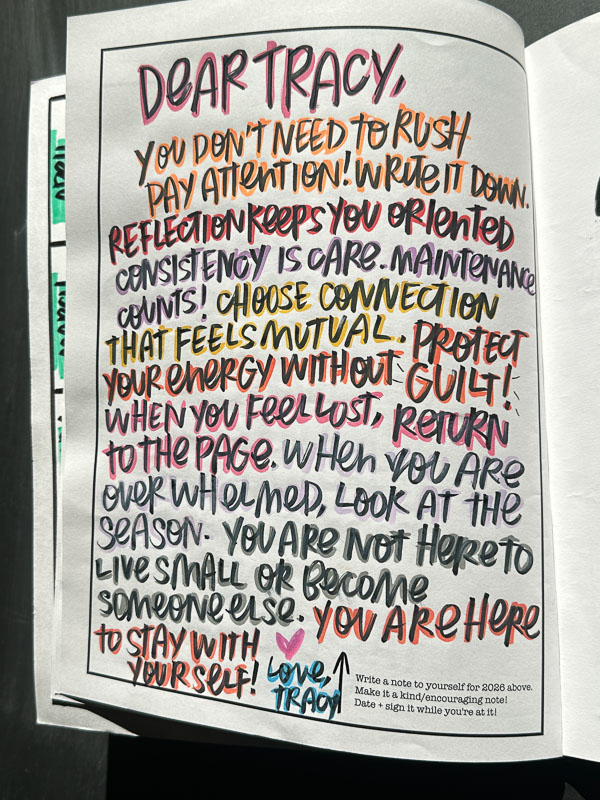 DEAR TRACY,
YOU DON'T NEED TO RUSH
PAY ATTENTION! WRITE IT DOWN.
REFLECTION KEEPS YOU ORIENTED
CONSISTENCY IS CARE. MAINTENANCE
COUNTS! CHOOSE CONNECTION
THAT FEELS MUTUAL. PROTECT
YOUR ENERGY WITHOUT GUILT!
WHEN YOU FEEL LOST, RETURN
TO THE PAGE. WHEN YOU ARE
OVERWHELMED, LOOK AT THE
SEASON. YOU ARE NOT HERE TO
LIVE SMALL OR BECOME
SOMEONE ELSE. YOU ARE HERE
TO STAY WITH
YOURSELF! LOVE,
TRACY
Write a note to yourself for 2026 above.
Make it a kind/encouraging note!
Date + sign it while you're at it!